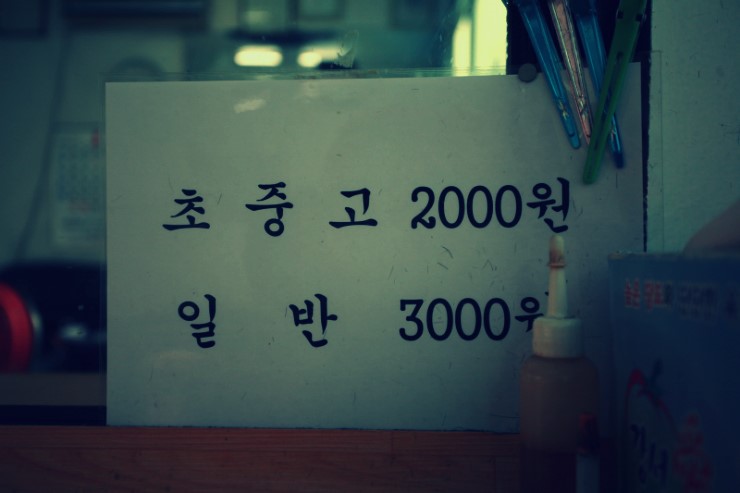 초 중 고 2000원
일 반 3000원